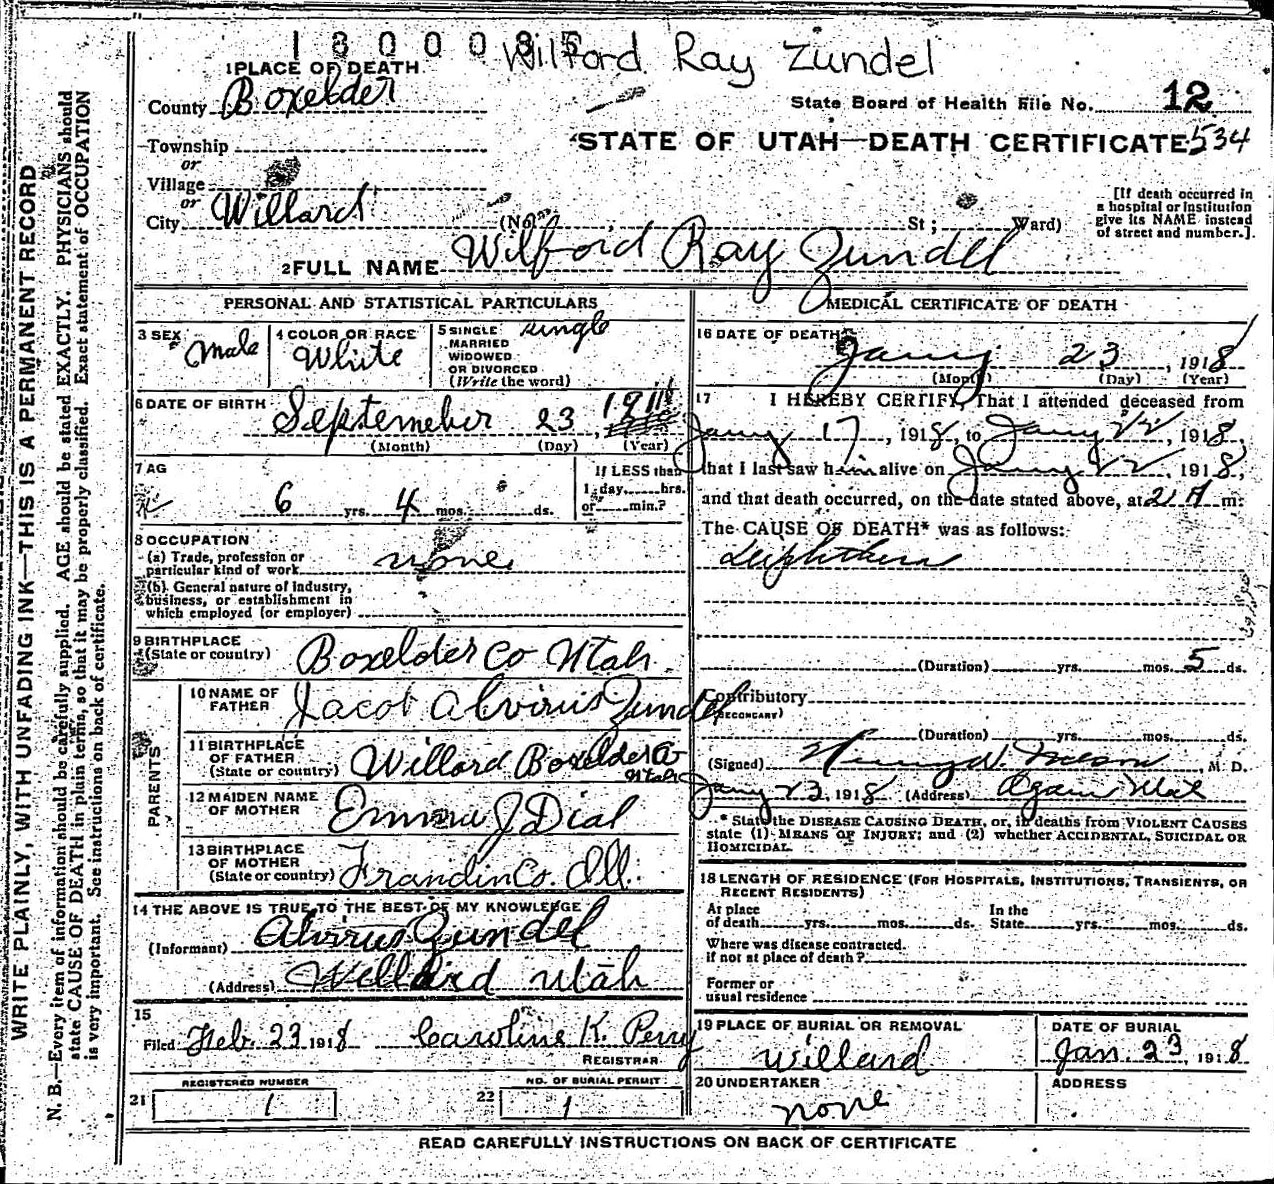 1800085 Wilford Ray Zundel
1 PLACE OF DEATH
County Boxelder
State Board of Health File No. 12
Township
STATE OF UTAH—DEATH CERTIFICATE 534
or
Village
or
City Willard (No. , St ; Ward)
[If death occurred in
a hospital or institution
give its NAME instead
of street and number.].
2 FULL NAME Wilford Ray Zundel
PERSONAL AND STATISTICAL PARTICULARS
3 SEX Male
4 COLOR OR RACE White
5 SINGLE single
MARRIED
WIDOWED
OR DIVORCED
(Write the word)
6 DATE OF BIRTH Septemeber 23, 1911
(Month) (Day) (Year)
7 AG
6 yrs. 4 mos. ds.
If LESS than
1 day, hrs.
or min.?
8 OCCUPATION
(a) Trade, profession or
particular kind of work none
(b) General nature of industry,
business, or establishment in
which employed (or employer)
9 BIRTHPLACE
(State or country) Boxelder Co Utah
PARENTS
10 NAME OF
FATHER Jacob Alvirus Zundel
11 BIRTHPLACE
OF FATHER
(State or country) Willard Boxelder Co
Utah
12 MAIDEN NAME
OF MOTHER Emma J Dial
13 BIRTHPLACE
OF MOTHER
(State or country) Frandin Co. Ill.
14 THE ABOVE IS TRUE TO THE BEST OF MY KNOWLEDGE
(Informant) Alvirus Zundel
(Address) Willard Utah
15
Filed Feb. 23 1918 Caroline K. Perry
REGISTRAR
REGISTERED NUMBER
21 1
NO. OF BURIAL PERMIT
22 1
MEDICAL CERTIFICATE OF DEATH
16 DATE OF DEATH
Jany 23, 1918
(Month) (Day) (Year)
17 I HEREBY CERTIFY, That I attended deceased from
Jany 17, 1918, to Jany 22, 1918,
that I last saw him alive on Jany 22, 1918,
and that death occurred, on the date stated above, at 2 A m.
The CAUSE OF DEATH* was as follows:
Diphtheria
(Duration) yrs. mos. 5 ds.
Contributory
(SECONDARY)
(Duration) yrs. mos. ds.
(Signed) Nelson, M. D.
Jany 23, 1918 (Address) Ogden Utah
* State the DISEASE CAUSING DEATH, or, in deaths from VIOLENT CAUSES
state (1) MEANS OF INJURY; and (2) whether ACCIDENTAL, SUICIDAL OR
HOMICIDAL.
18 LENGTH OF RESIDENCE (FOR HOSPITALS, INSTITUTIONS, TRANSIENTS, OR
RECENT RESIDENTS)
At place
of death yrs. mos. ds.
In the
State yrs. mos. ds.
Where was disease contracted.
if not at place of death?
Former or
usual residence
19 PLACE OF BURIAL OR REMOVAL
Willard
DATE OF BURIAL
Jan. 23, 1918
20 UNDERTAKER
none
ADDRESS
READ CAREFULLY INSTRUCTIONS ON BACK OF CERTIFICATE
WRITE PLAINLY, WITH UNFADING INK—THIS IS A PERMANENT RECORD
N. B.—Every item of information should be carefully supplied. AGE should be stated EXACTLY. PHYSICIANS should
state CAUSE OF DEATH in plain terms, so that it may be properly classified. Exact statement of OCCUPATION
is very important. See instructions on back of certificate.